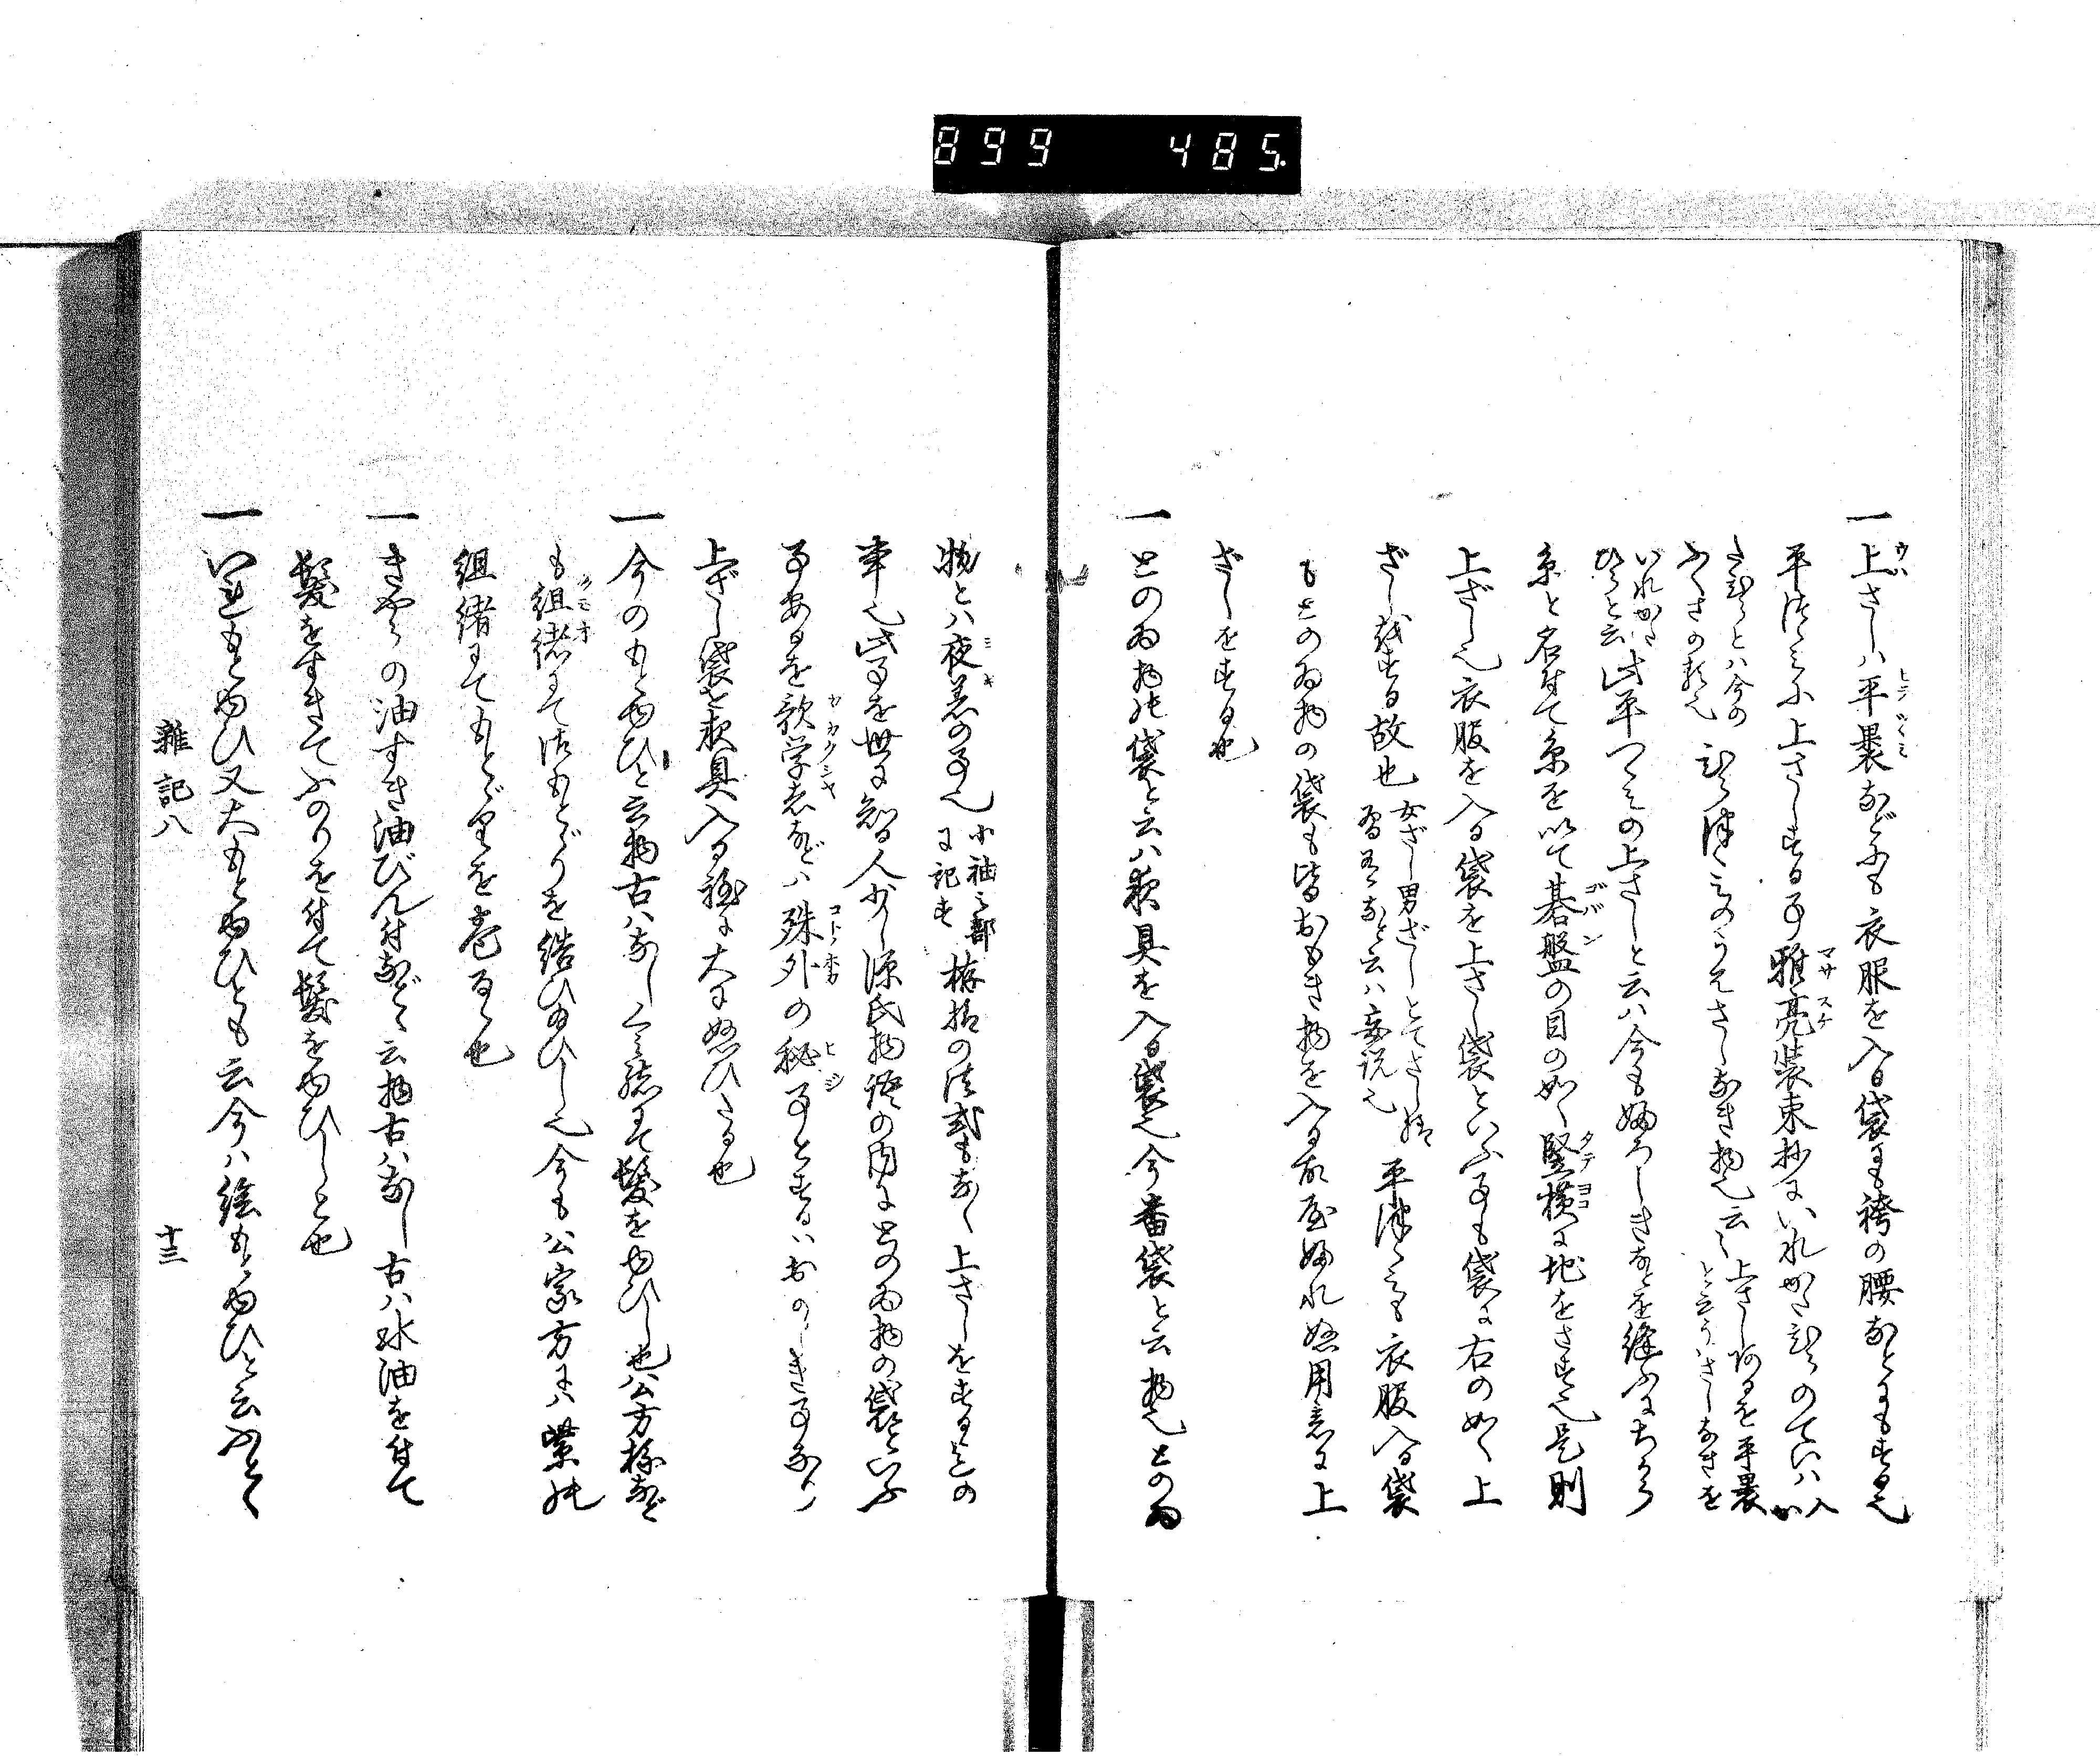 899 485
一上さしハ平裹などにも衣服を入る袋にも袴の腰なとにもする也
平つゝみに上さしする事雅亮装束抄にいれかたひらのていハ入か
たひらとハ今の
ふくさの類也ひらつゝみのうはさしなき物也云々上さしあるを平裹
といひうハさしなきを
いれかた
ひらと云此平つゝみの上さしと云ハ今も婦ろしきなとを縫ふにちから
糸と名付て糸を以て碁盤の目の如く竪横に地をさす也是則
上ざし也衣服を入る袋を上さし袋といふ事も袋に右の如く上
ざしをする故也女ざし男ざしとてさし様
有るなと云ハ妄説也平つゝみも衣服入る袋
もとのゐ物の袋も皆おもき物を入る故やふれぬ用意に上
ざしをする也
一とのゐ物の袋と云ハ夜具を入る袋也今番袋と云物也とのゐ
物とハ夜着の事也小袖之部
に記す 上さしをするとの
事也此事を世に知る人少し源氏物語の内にとのゐ物の袋といふ
事あるを歌学者などハ殊外の秘事とするハおかしき事なり
上ざし袋を夜具入る
一今のもとゆひと云物古ハなし こよりにて髪をゆひし也公方様など
も組緒にて御もとどりを結ひ給ひし也今も公家方にハ紫の
組緒にてもとどりを巻るゝ也
一きやらの油すき油びん付などゝ云物古ハなし古ハ水油を付て
髪をすきてふのりを付て髪をゆひしと也
一いれもとゆひ又大もとゆひとも云今ハ絵もとゆひと云ふとく
雑記八
十三